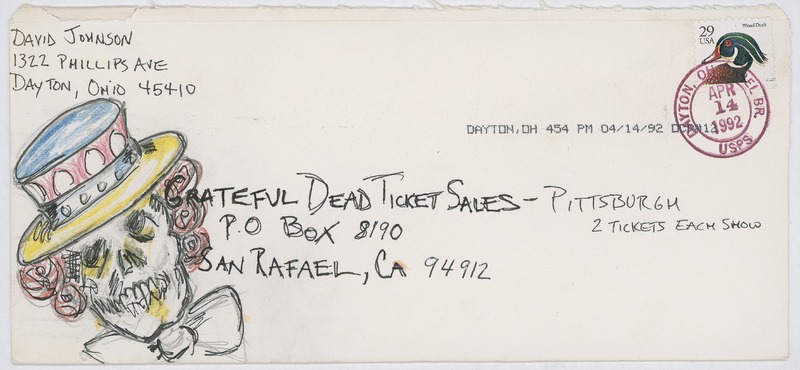 David Johnson
1322 Phillips Ave
Dayton, Ohio 45410
29
USA
Wood Duck
DAYTON, OH
APR
14
1992
USPS
DAYTON,OH 454 PM 04/14/92
Grateful Dead Ticket Sales - Pittsburgh
2 Tickets Each Show
P.O Box 8190
San Rafael, Ca 94912